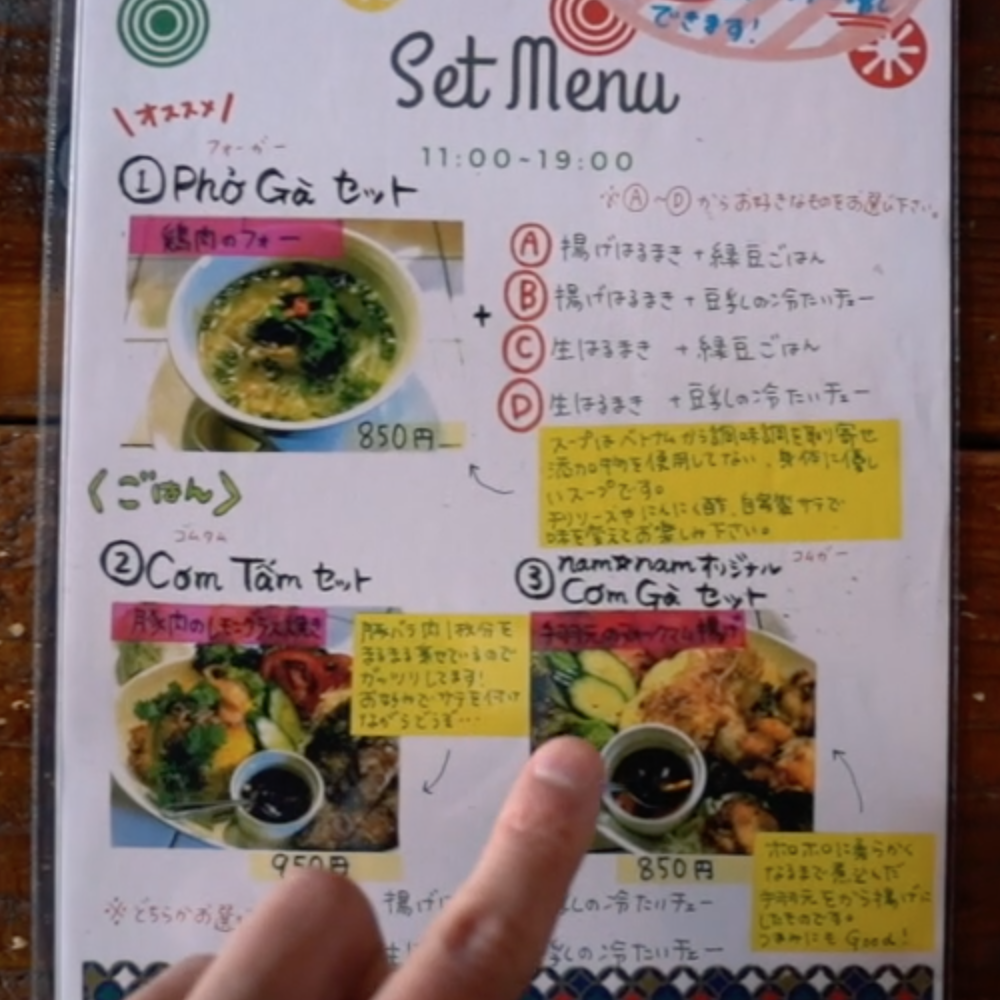 できます!
Set Menu
\オススメ/
11:00~19:00
フォーガー
①Phở Gà セット
※Ⓐ~Ⓓからお好きなものをお選び下さい。
鶏肉のフォー
+
Ⓐ 揚げはるまき + 緑豆ごはん
Ⓑ 揚げはるまき + 豆乳の冷たいチェー
Ⓒ 生はるまき + 緑豆ごはん
Ⓓ 生はるまき + 豆乳の冷たいチェー
850円
スープはベトナムから調味調を取り寄せ
添加物を使用してない、身体に優し
いスープです。
チリソースやにんにく酢、自家製サテで
味を変えてお楽しみ下さい。
〈ごはん〉
コムタム
②Cơm Tấm セット
豚肉のレモングラス焼き
豚バラ肉1枚分を
まるまる乗せているので
ガッツリしてます!
お好みでサテを付け
ながらどうぞ…
950円
nam☆namオリジナル
コムガー
③Cơm Gà セット
手羽元のヌックマム揚げ
850円
ホロホロに柔らかく
なるまで煮込んだ
手羽元をから揚げに
したものです。
つまみにも Good!
※どちらかお選
揚げ
の冷たいチェー
生
乳の冷たいチェー